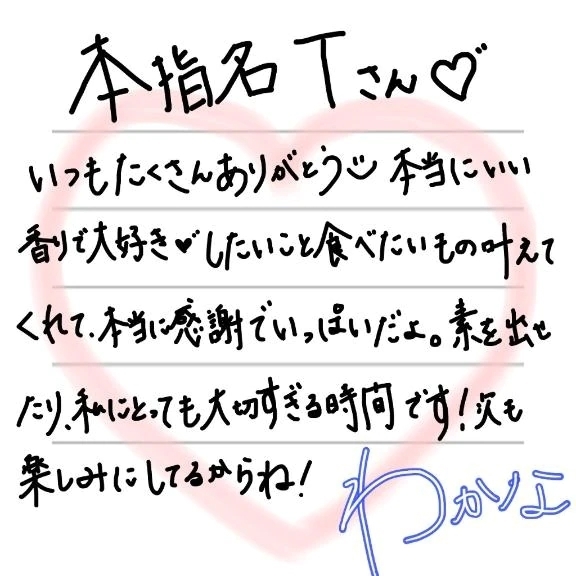 本指名 Tさん♡
いつもたくさんありがとう☺ 本当にいい
香りで大好き♥したいこと食べたいもの叶えて
くれて、本当に感謝でいっぱいだよ。素を出せ
たり、私にとっても大切すぎる時間です!次も
楽しみにしてるからね!
わかな